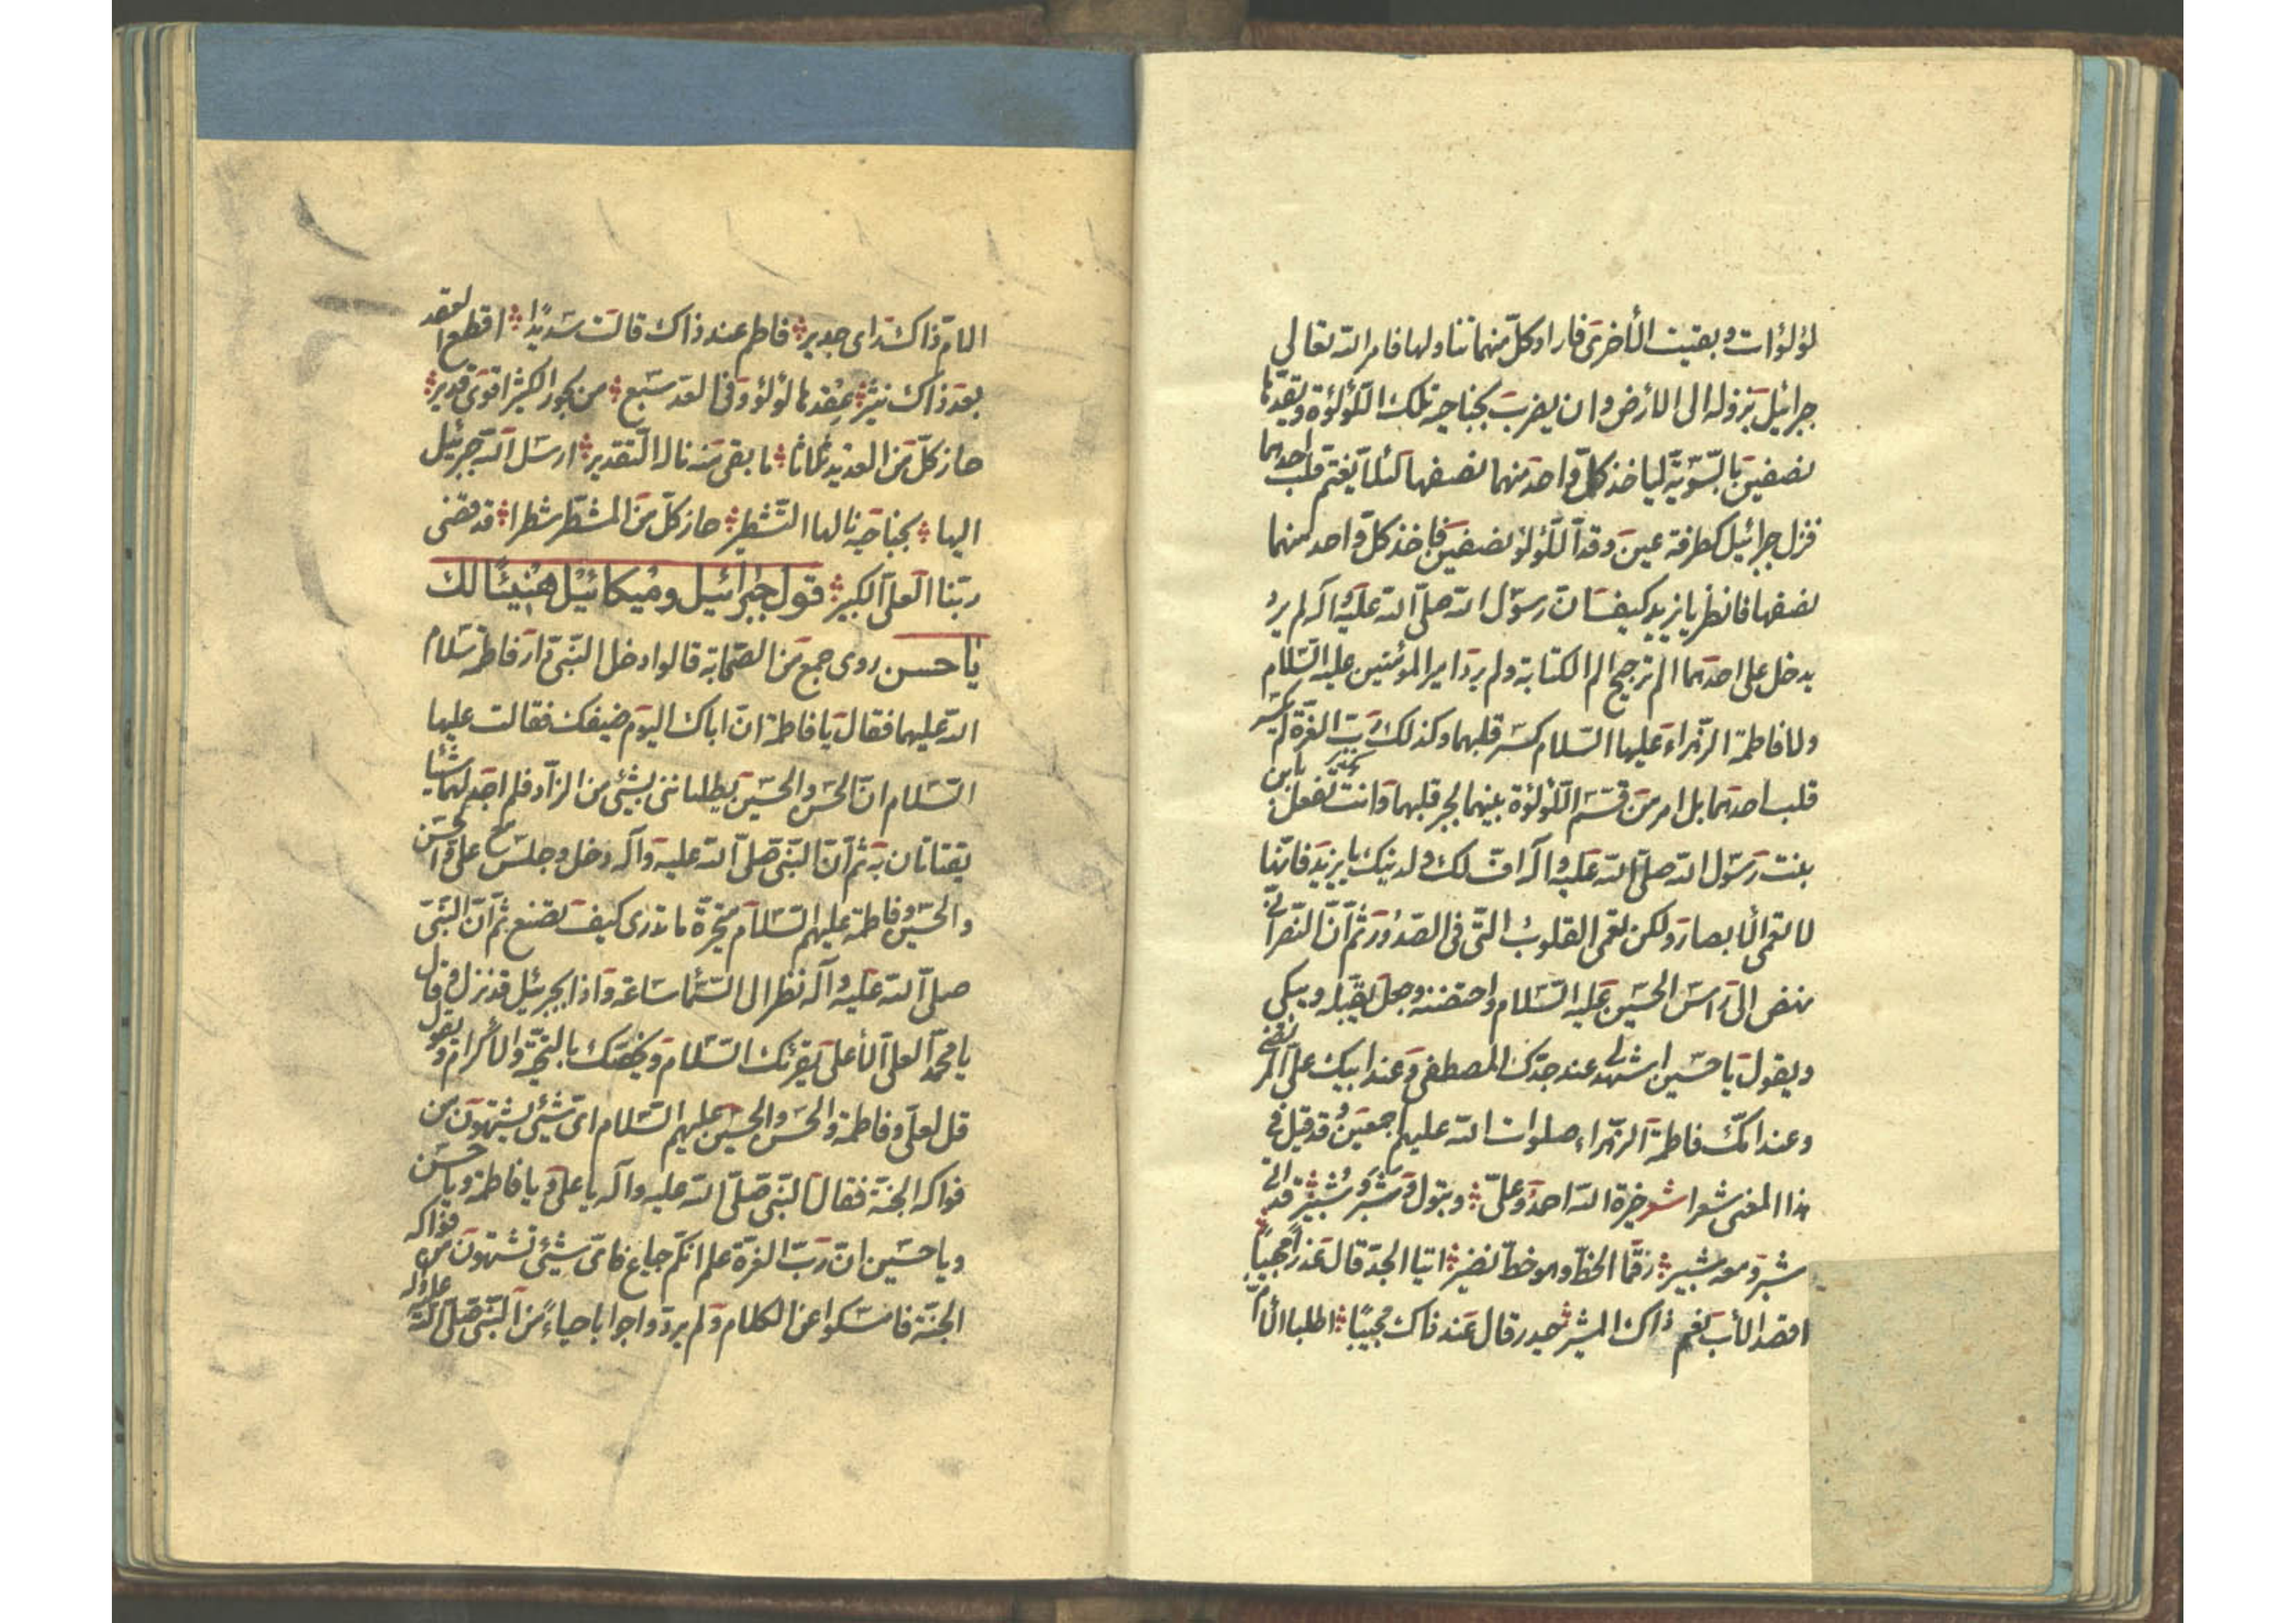 لؤلؤات وبقيت الأخرى فاراد كلّ منهما تناولها فامر الله تعالي
جبرائيل بنزوله الى الأرض وان يضرب بجناحيه تلك اللّؤلؤة ويقدّها
نصفين بالسّويّة ليأخذ كلّ واحد منهما نصفها لئلا يغتم قلب احدهما
فنزل جبرائيل كطرفة عين وقدّ اللّؤلؤ نصفين فاخذ كلّ واحد منهما
نصفها فانظر يا يزيد كيف انّ رسول الله صلّى الله عليه واله لم يرد
يدخل على احدهما الم ترجيح الم الكتابة ولم يرد امير المؤمنين عليه السّلام
ولا فاطمة الزّهراء عليها السّلام كسر قلبهما وكذلك ربّ العزّة لم يكسر
قلب احدهما بل امر من قسم اللّؤلؤة بينهما لجبر قلبهما وانت تفعل بابن
بنت رسول الله صلّى الله عليه واله افّ لك ولدينك يا يزيد فانّها
لا تعمى الأبصار ولكن تعمى القلوب التّي فى الصّدور ثمّ انّ النّصرانّي
نهض الى راس الحسين عليه السّلام واحتضنه وجعل يقبّله ويبكي
ويقول يا حسين اشهد لي عند جدّك المصطفى وعند ابيك علي المرتضى
وعند امّك فاطمة الزّهراء صلوات الله عليهم اجمعين وقد قيل في
هذا المعنى شعرا شعر خيرة الله احمد وعلىّ وبتول وشبّر وشبّير قد اتى
شبّر ومعه شبير رقما الخطّ وهو خطّ نضير اتيا الجدّ قال عذرا مجيبا
اقصد الأب نعم ذاك المشير حيدر قال عند ذاك مجيبًا اطلبا الأمّ
الامّ ذاك راى جدير فاطم عند ذاك قالت سديدًا اقطع العقد
بعد ذاك نثير عقدها لؤلؤ وفى العدّ سبع من بحوز الكثير اقوى قدير
حاز كلّ من العديد ثلاثا ما بقى منه ناله التقدير ارسل الله جبرئيل
اليها بجناحيه نالها التّشطير حاز كلّ من المشطّر شطرا قد قضى
ربّنا العلىّ الكبير قول جبرائيل وميكائيل هنيئًا لك
يا حسن روى جمع من الصّحابة قالوا دخل النّبىّ دار فاطمة سلام
الله عليهما فقال يا فاطمة انّ اباك اليوم ضيفك فقالت عليها
السّلام انّ الحسن والحسين يطلباننى بشيئ من الزّاد فلم اجد لهما شيئا
يقتاتان به ثمّ انّ النّبىّ صلّى الله عليه وآله دخل وجلس مع علىّ والحسن
والحسين وفاطمة عليهم السّلام متحيّرة ما تدرى كيف تصنع ثمّ انّ النّبىّ
صلّى الله عليه وآله نظر الى السّماء ساعة واذا بجبرئيل قد نزل وقال
يا محمّد العلىّ الأعلى يقرئك السّلام ويخصّك بالتّحيّة والأكرام ويقول
قل لعلىّ وفاطمة والحسن والحسين عليهم السّلام اىّ شيئ يشتهون من
فواكه الجنّة فقال النّبىّ صلّى الله عليه وآله يا علىّ ويا فاطمة ويا حسن
ويا حسين انّ ربّ العزّة علم انّكم جياع فاىّ شيئ تشتهون من فواكه
الجنّة فامسكوا عن الكلام ولم يردّوا جوابا حياءً من النّبىّ صلّى الله عليه وآله